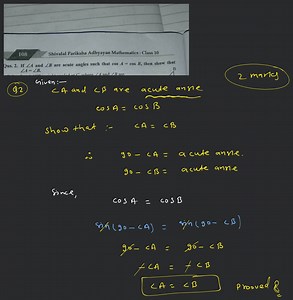 108 Shivalal Pariksha Adhyayan Mathematics : Class 10
Que. 2. If ∠A and ∠B are acute angles such that cos A = cos B, then show that
∠A = ∠B.
2 marks
Q2 Given :-
∠A and ∠B are acute angle
cosA = cosB
Show that :- ∠A = ∠B
∴ 90 - ∠A = acute angle.
90 - ∠B = acute angle
Since,
cosA = cosB
sin(90-∠A) = sin(90-∠B)
90-∠A = 90-∠B
-∠A = -∠B
∠A = ∠B
Proved